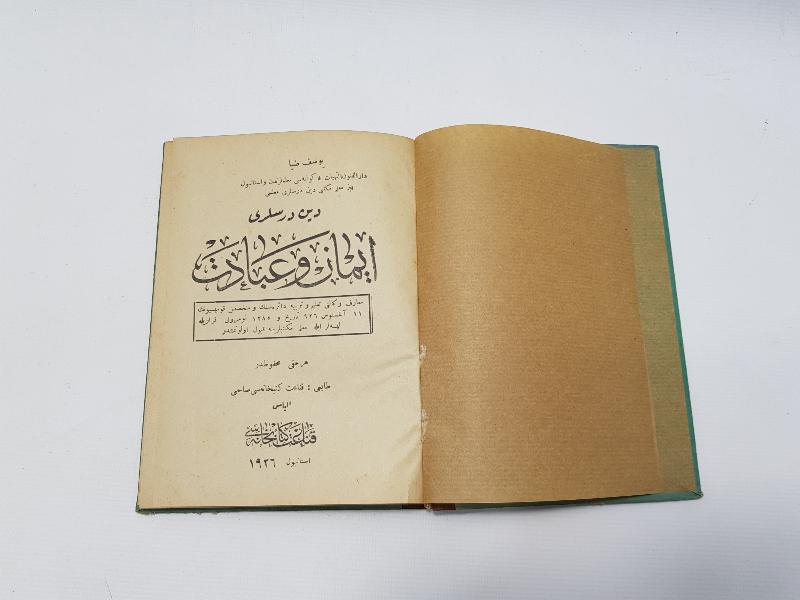 يوسف ضيا
دار الفنون الهيات فاكولته‌سی معلملرندن و استانبول
ار معلم مكتبی دين درسلری معلمی
دين درسلری
ايمان و عبادت
معارف وكالتی تعليم و تربيه دائره‌سنك و متخصص قوميسيونك
١١ آغستوس ٩٢٦ تاريخ و ١٢٨٥ نومرولی قراريله
ليسه‌لر ايله معلم مكتبلرينه قبول اولونمشدر
هر حقی محفوظدر
طابعی : قناعت كتبخانه‌سی صاحبی
الياس
قناعت كتبخانه‌سی
استانبول ١٩٢٦